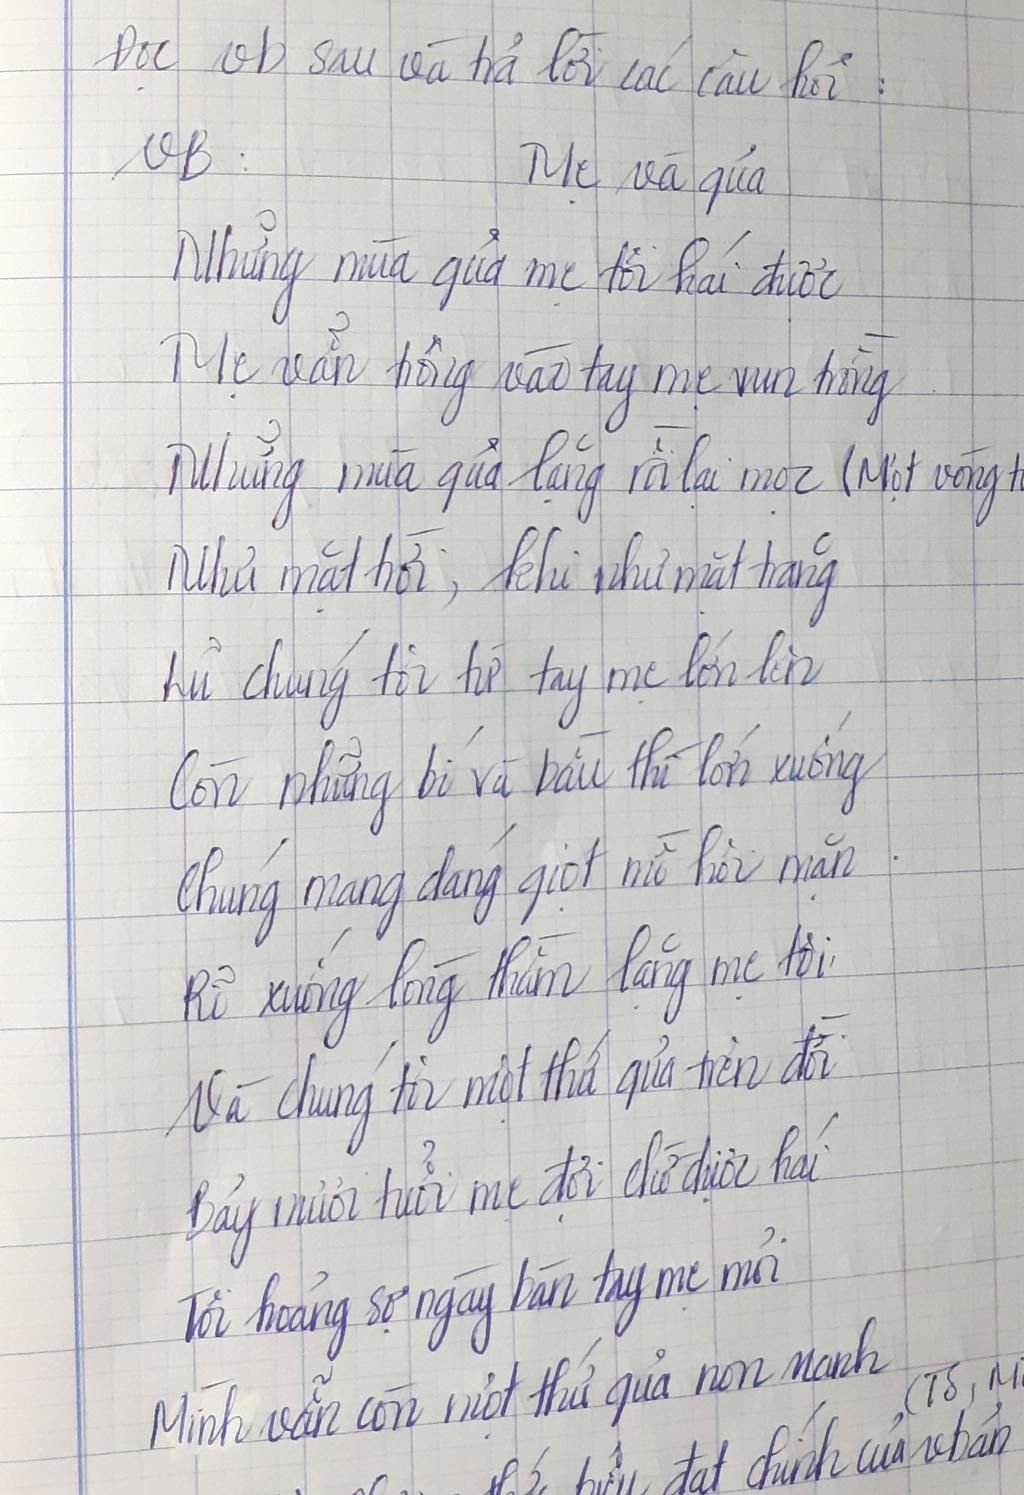 Đọc vb sau và trả lời các câu hỏi :
VB : Mẹ và quả
Những mùa quả mẹ tôi hái được
Mẹ vẫn trông vào tay mẹ vun trồng
Những mùa quả lặng rồi lại mọc (Một vòng
Như mặt trời, khi như mặt trăng
Lũ chúng tôi từ tay mẹ lớn lên
Còn những bí và bầu thì lớn xuống
Chúng mang dáng giọt mồ hôi mặn
Rỏ xuống lòng thầm lặng mẹ tôi
Và chúng tôi một thứ quả trên đời
Bảy mươi tuổi mẹ đợi chờ được hái
Tôi hoảng sợ ngày bàn tay mẹ mỏi
Mình vẫn còn một thứ quả non xanh
(TS,
biểu đạt chính của vbản